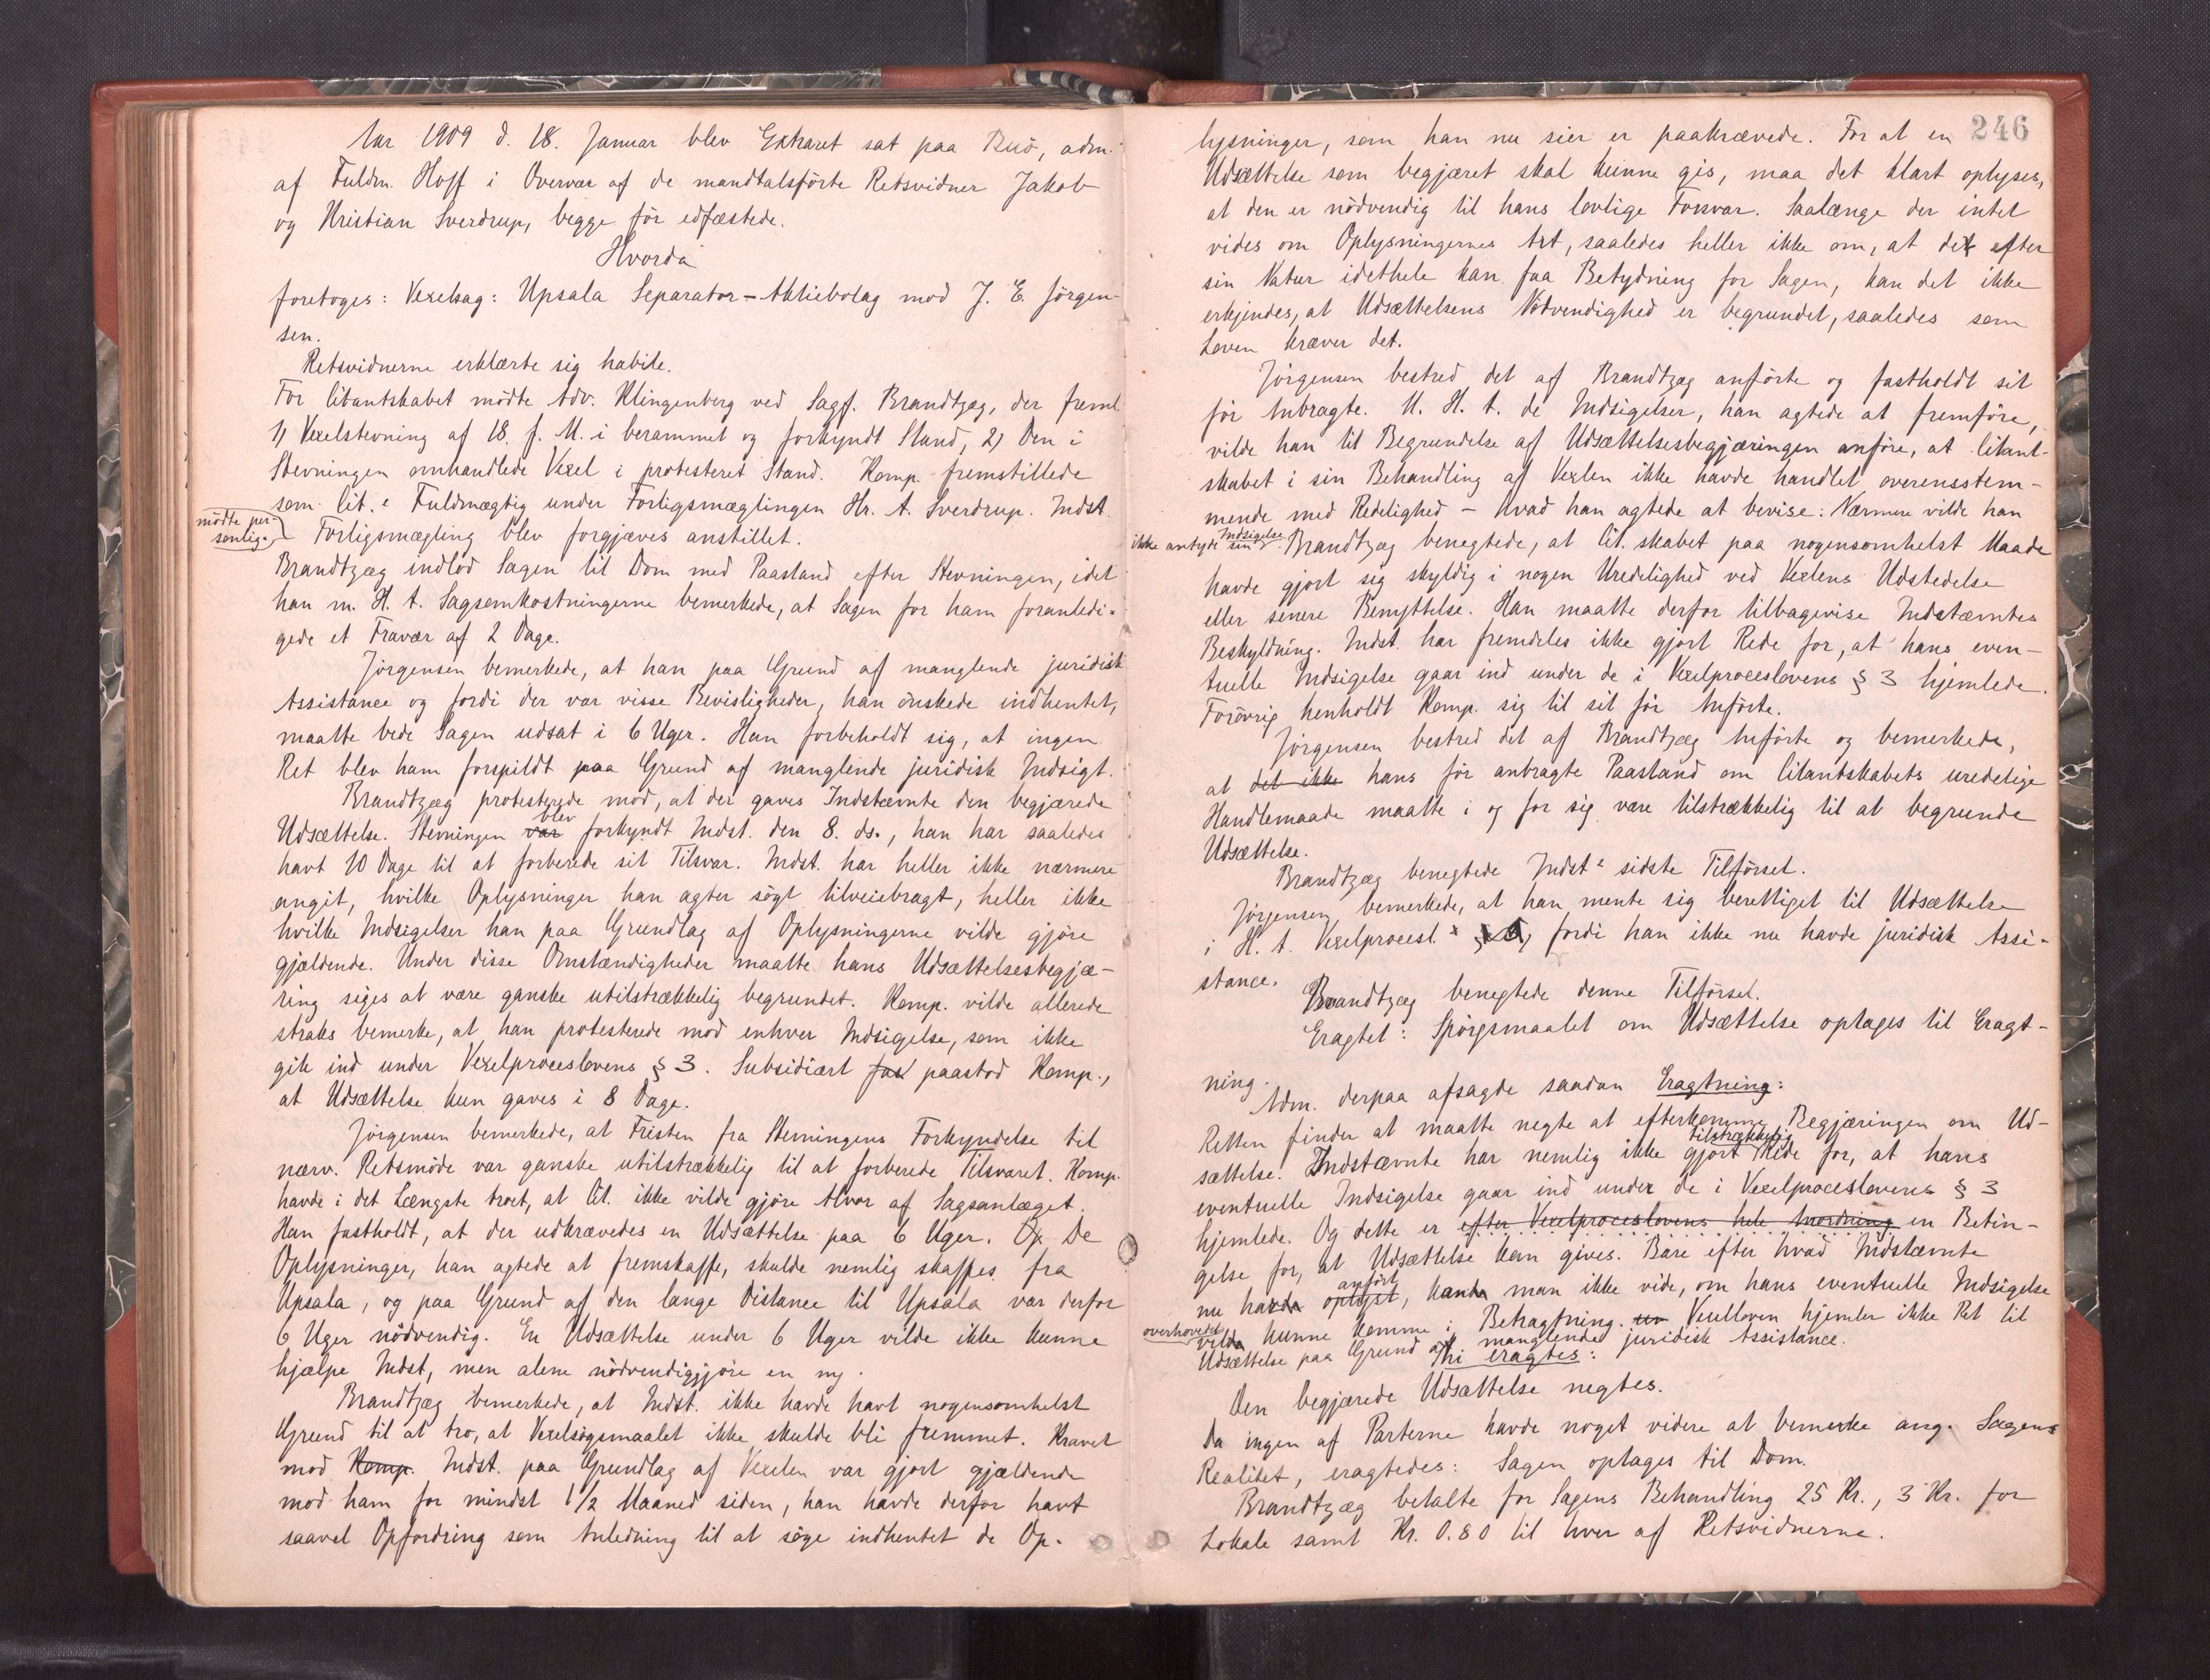 Aar 1909 d. 18. Januar blev Extraret sat paa Buö, adm.
af Fuldm. Hoff i Overvær af de mandtalsförte Retsvidner Jakob
og Kristian Sverdrup, begge för edfæstede.
Hvorda
foretoges: Vexelsag: Upsala Separator-Aktiebolag mod J. E. Jörgen-
sen.
Retsvidnerne erklærte sig habile.
For Citantskabet mödte Adv. Klingenberg ved Sagf. Brandtzæg, der freml.
1) Vexelstevning af 18. f. M. i berammet og forkyndt Stand, 2) Den i
Stevningen omhandlede Vexel i protesteret Stand. Komp. fremstillede
som Cit.s Fuldmægtig under Forligsmæglingen Hr. A. Sverdrup. Indst.
mödte per-
sonlig. Forligsmægling blev forgjæves anstillet.
Brandtzæg indlod Sagen til Dom med Paastand efter Stevningen, idet
han m. H. t. Sagsomkostningerne bemerkede, at Sagen for ham foranledi-
gede et Fravær af 2 Dage.
Jörgensen bemerkede, at han paa Grund af manglende juridisk
Assistance og fordi der var visse Bevisligheder, han önskede indhentet,
maatte bede Sagen udsat i 6 Uger. Han forbeholdt sig, at ingen
Ret blev ham forspildt paa Grund af manglende juridisk Indsigt.
Brandtzæg protesterede mod, at der gaves Indstævnte den begjærede
Udsættelse. Stevningen var blev forkyndt Indst. den 8. ds., han har saaledes
havt 10 Dage til at forberede sit Tilsvar. Indst. har heller ikke nærmere
angit, hvilke Oplysninger han agter sögt tilveiebragt, heller ikke
hvilke Indsigelser han paa Grundlag af Oplysningerne vilde gjöre
gjældende. Under disse Omstændigheder maatte hans Udsættelsesbegjæ-
ring siges at være ganske utilstrækkelig begrundet. Komp. vilde allerede
straks bemerke, at han protesterede mod enhver Indsigelse, som ikke
gik ind under Vexelproceslovens § 3. Subsidiært paastod Komp.,
at Udsættelse kun gaves i 8 Dage.
Jörgensen bemerkede, at Fristen fra Stevningens Forkyndelse til
nærv. Retsmöde var ganske utilstrækkelig til at forberede Tilsvaret. Komp.
havde i det Længste troet, at Cit. ikke vilde gjöre Alvor af Sagsanlæget.
Han fastholdt, at der udkrævedes en Udsættelse paa 6 Uger. Op De
Oplysninger, han agtede at fremskaffe, skulde nemlig skaffes fra
Upsala, og paa Grund af den lange Distance til Upsala var derfor
6 Uger nödvendig. En Udsættelse under 6 Uger vilde ikke kunne
hjælpe Indst, men alene nödvendiggjöre en ny.
Brandtzæg bemerkede, at Indst. ikke havde havt nogensomhelst
Grund til at tro, at Vexelsögsmaalet ikke skulde bli fremmet. Kravet
mod Komp. Indst. paa Grundlag af Vexelen var gjort gjældende
mod ham for mindst 1 1/2 Maaned siden, han havde derfor havt
saavel Opfordring som Anledning til at söge indhentet de Op-
246
lysninger, som han nu sier er paakrævede. For at en
Udsættelse som begjæret skal kunne gis, maa det klart oplyses,
at den er nödvendig til hans lovlige Forsvar. Saalænge der intet
vides om Oplysningernes Art, saaledes heller ikke om, at det efter
sin Natur idethele kan faa Betydning for Sagen, kan det ikke
erkjendes, at Udsættelsens Nödvendighed er begrundet, saaledes som
Loven kræver det.
Jörgensen bestred det af Brandtzæg anförte og fastholdt sit
för Anbragte. M. H. t. de Indsigelser, han agtede at fremföre,
vilde han til Begrundelse af Udsættelsesbegjæringen anföre, at Citant-
skabet i sin Behandling af Vexlen ikke havde handlet overensstem-
mende med Redelighed – hvad han agtede at bevise. Nærmere vilde han
ikke antyde sin Indsigelse. Brandtzæg benegtede, at Cit.skabet paa nogensomhelst Maade
havde gjort sig skyldig i nogen Uredelighed ved Vexlens Udstedelse
eller senere Benyttelse. Han maatte derfor tilbagevise Indstævntes
Beskyldning. Indst. har fremdeles ikke gjort Rede for, at hans even-
tuelle Indsigelse gaar ind under de i Vexelproceslovens § 3 hjemlede.
Forövrig henholdt Komp. sig til sit för Anförte.
Jörgensen bestred det af Brandtzæg Anförte og bemerkede,
at det ikke hans för anbragte Paastand om Citantskabets uredelige
Handlemaade maatte i og for sig være tilstrækkelig til at begrunde
Udsættelse.
Brandtzæg benegtede Indst.s sidste Tilförsel.
Jörgensen bemerkede, at han mente sig berettiget til Udsættelse
i H. t. Vexelprocesl.s fordi han ikke nu havde juridisk Assi-
stance.
Brandtzæg benegtede denne Tilförsel.
Eragtet: Spörgsmaalet om Udsættelse optages til Eragt-
ning.
Adm. derpaa afsagde saadan Eragtning:
Retten finder at maatte negte at efterkomme Begjæringen om Ud-
sættelse. Indstævnte har nemlig ikke gjort tilstrækkelig Rede for, at hans
eventuelle Indsigelse gaar ind under de i Vexelproceslovens § 3
hjemlede. Og dette er efter Vexelproceslovens hele Anordning en Betin-
gelse for, at Udsættelse kan gives. Bare efter hvad Indstævnte
nu havde oplyst anfört, kande man ikke vide, om hans eventuelle Indsigelse
overhovedet vilde kunne komme i Betragtning. Vexelloven hjemler ikke Ret til
Udsættelse paa Grund af manglende juridisk Assistance.
Thi eragtes:
Den begjærede Udsættelse negtes.
Da ingen af Parterne havde noget videre at bemerke ang. Sagens
Realitet, eragtedes: Sagen optages til Dom.
Brandtzæg betalte for Sagens Behandling 25 Kr., 3 Kr. for
Lokale samt Kr. 0.80 til hver af Retsvidnerne.